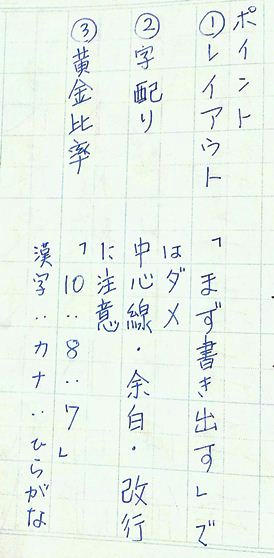 ポイント
①レイアウト 「まず書き出す」で
はダメ
②字配り 中心線・余白・改行
に注意
③黄金比率 「10:8:7」
漢字:カナ:ひらがな